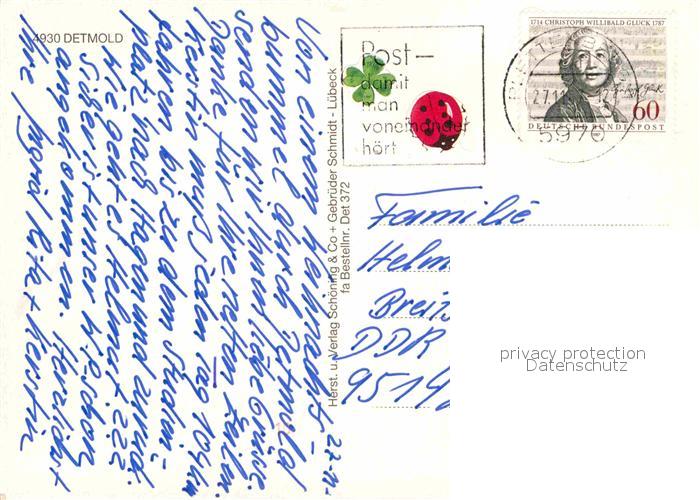 4930 DETMOLD
27.11.
Von einem Weihnachts-
bummel durch Detmold
senden wir herzliche Grüße.
Danke für Ihre netten Zeilen.
Kerstin muß jeden Tag 104 km
fahren bis zu dem Studien-
platz nach Hagen und zurück.
Wie geht es Helmut???
ist unser
angekommen. Herzlichst
Ihre Ingrid Rita + Kerstin
Herst. u. Verlag Schöning & Co + Gebrüder Schmidt - Lübeck
fa Bestellnr. Det 372
Post-
damit
man
voneinander
hört
1714 CHRISTOPH WILLIBALD GLUCK 1787
60
DEUTSCHE BUNDESPOST
27.11
5970
Familie
Helm
Breit
DDR
9514
privacy protection
Datenschutz